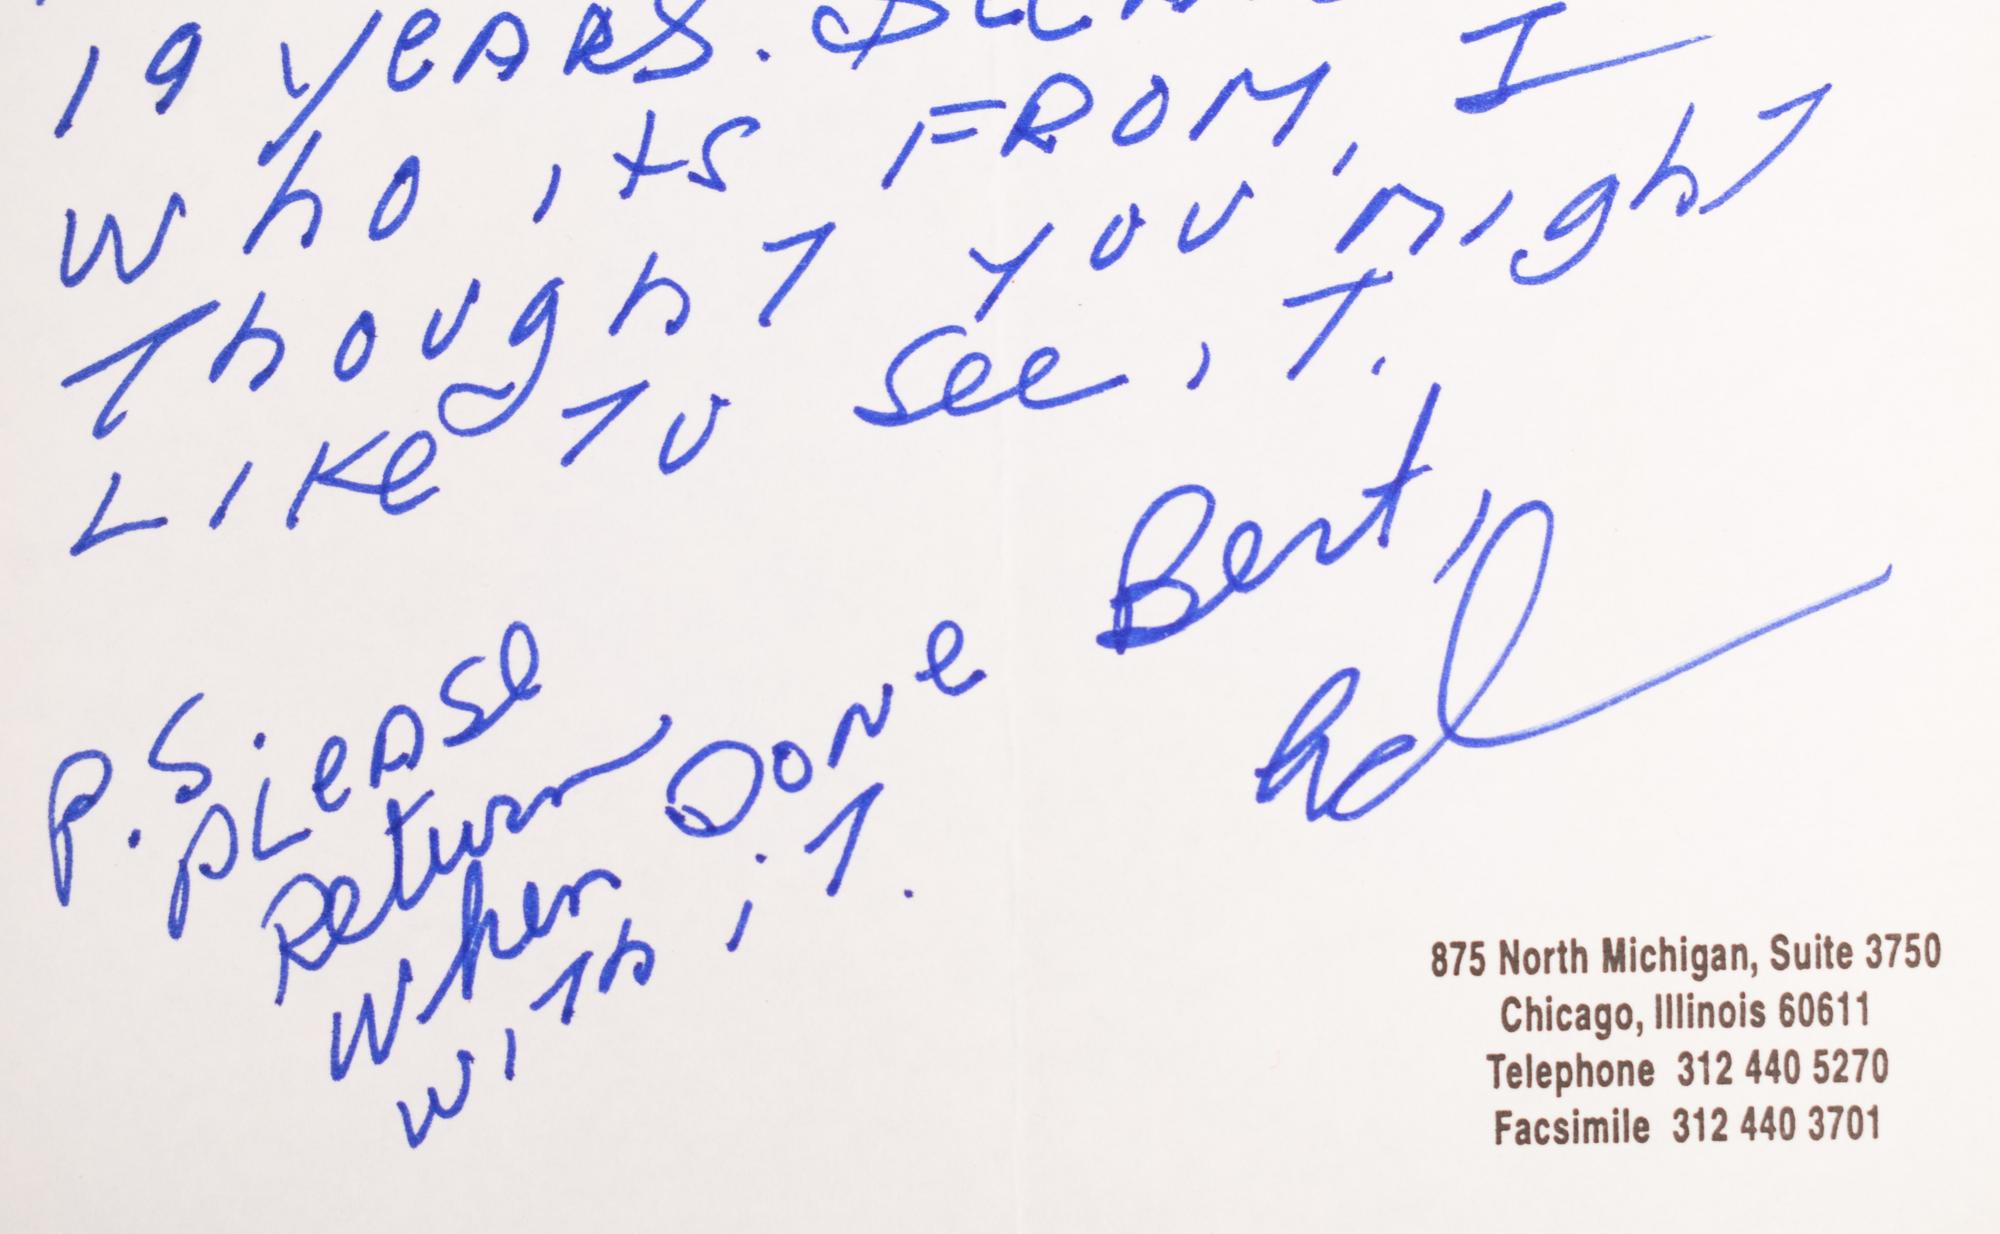 19 YEARS.
Who its FROM, I
Thought you might
Like to see it.
Best,
P.S please
Return
When Done
with it.
875 North Michigan, Suite 3750
Chicago, Illinois 60611
Telephone 312 440 5270
Facsimile 312 440 3701